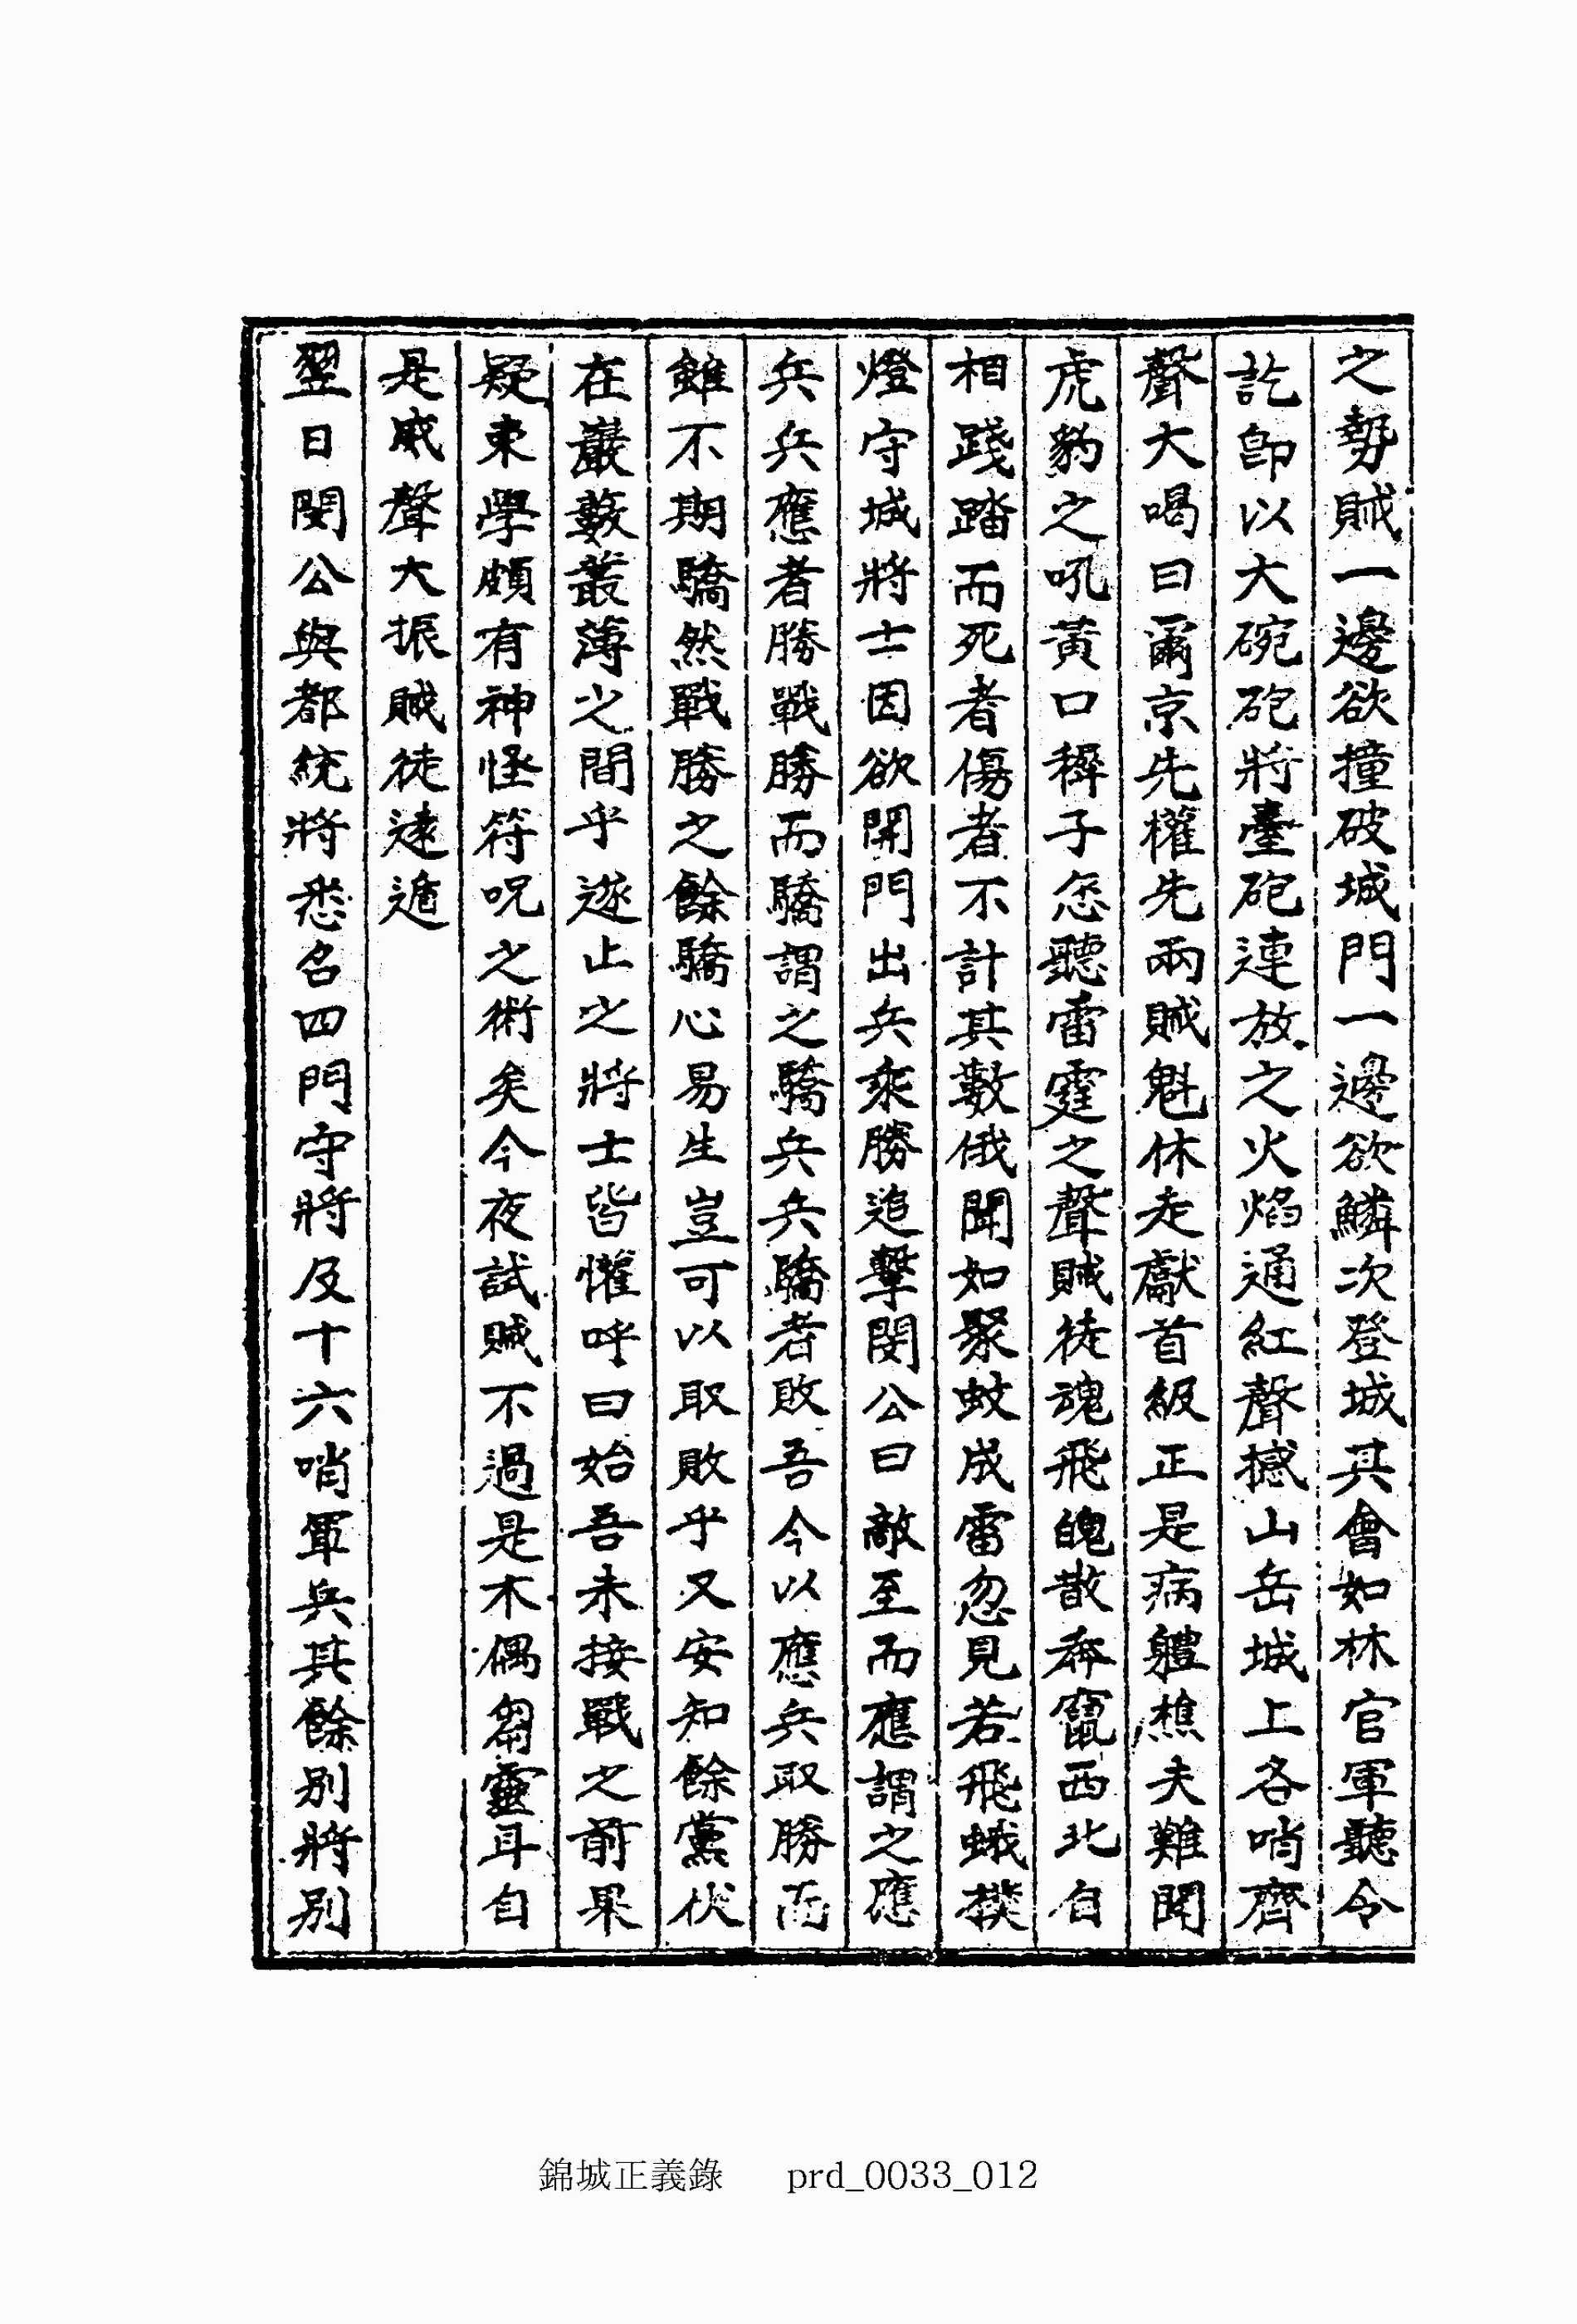 之勢賊一邊欲撞破城門一邊欲鱗次登城其會如林官軍聽令
訖卽以大碗砲將臺砲連放之火焰通紅聲撼山岳城上各哨齊
聲大喝曰爾京先權先兩賊魁休走獻首級正是病軆樵夫難聞
虎豹之吼黃口稺子怎聽雷霆之聲賊徒魂飛魄散奔竄西北自
相踐踏而死者傷者不計其數俄聞如聚蚊成雷忽見若飛蛾撲
燈守城將士因欲開門出兵乘勝追擊閔公曰敵至而應謂之應
兵兵應者勝戰勝而驕謂之驕兵兵驕者敗吾今以應兵取勝而
雖不期驕然戰勝之餘驕心易生豈可以取敗乎又安知餘黨伏
在巖藪叢薄之間乎遂止之將士皆懽呼曰始吾未接戰之前果
疑東學頗有神怪符呪之術矣今夜試賊不過是木偶芻靈耳自
是威聲大振賊徒遠遁
翌日閔公與都統將悉召四門守將及十六哨軍兵其餘別將別
錦城正義錄 prd_0033_012